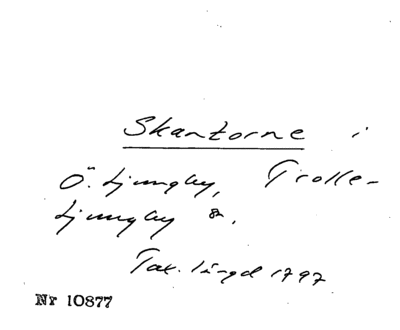 Skantorne i
Ö. Ljungby, Trolle-
Ljungby &.
Tax. längd 1797
Nr 10877